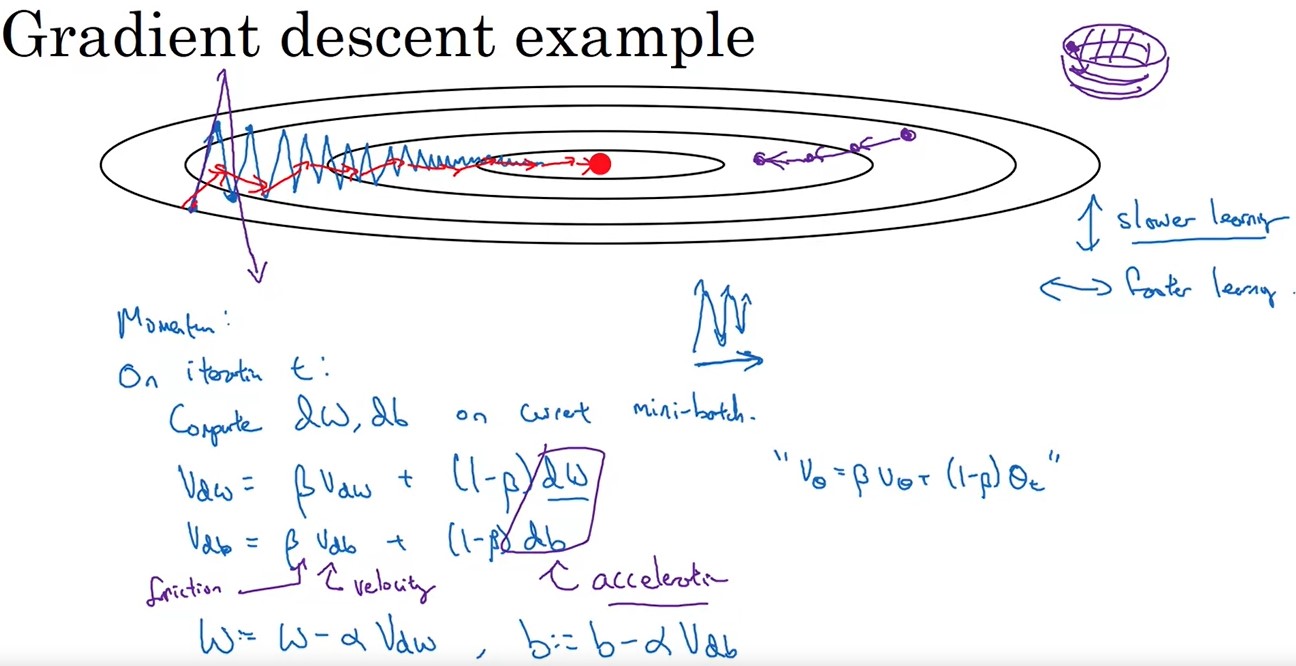 Gradient descent example
↕ slower learning
↔ faster learning.
Momentum:
On iteration t:
Compute dW, db on current mini-batch.
V_dw = β V_dw + (1-β) dW
"V_θ = β V_θ + (1-β) θ_t"
V_db = β V_db + (1-β) db
friction velocity acceleration
W := W - α V_dw , b := b - α V_db